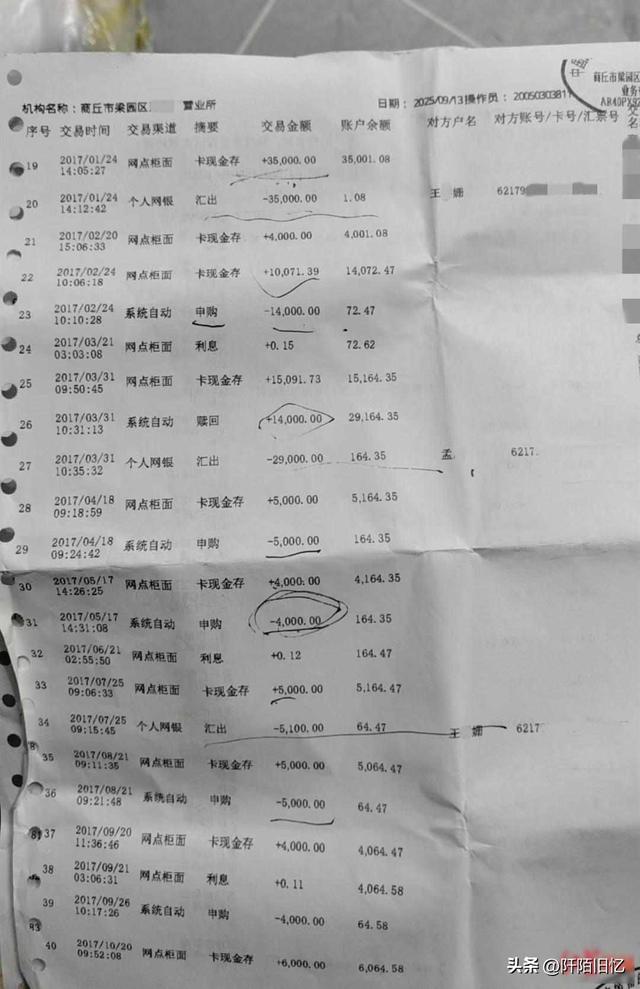 商丘市梁园区
业务
AR40PX92
机构名称：商丘市梁园区 营业所 日期：2025/09/13操作员：20050303811
序号 交易时间 交易渠道 摘要 交易金额 账户余额 对方户名 对方账号/卡号/汇票号
19 2017/01/24 14:05:27 网点柜面 卡现金存 +35,000.00 35,001.08
20 2017/01/24 14:12:42 个人网银 汇出 -35,000.00 1.08 王 姗 62179
21 2017/02/20 15:06:33 网点柜面 卡现金存 +4,000.00 4,001.08
22 2017/02/24 10:06:18 网点柜面 卡现金存 +10,071.39 14,072.47
23 2017/02/24 10:10:28 系统自动 申购 -14,000.00 72.47
24 2017/03/21 03:03:08 网点柜面 利息 +0.15 72.62
25 2017/03/31 09:50:45 网点柜面 卡现金存 +15,091.73 15,164.35
26 2017/03/31 10:31:13 系统自动 赎回 +14,000.00 29,164.35
27 2017/03/31 10:35:32 个人网银 汇出 -29,000.00 164.35 孟 6217
28 2017/04/18 09:18:59 网点柜面 卡现金存 +5,000.00 5,164.35
29 2017/04/18 09:24:42 系统自动 申购 -5,000.00 164.35
30 2017/05/17 14:26:25 网点柜面 卡现金存 +4,000.00 4,164.35
31 2017/05/17 14:31:08 系统自动 申购 -4,000.00 164.35
32 2017/06/21 02:55:50 网点柜面 利息 +0.12 164.47
33 2017/07/25 09:06:33 网点柜面 卡现金存 +5,000.00 5,164.47
34 2017/07/25 09:15:45 个人网银 汇出 -5,100.00 64.47 王 姗 6217
35 2017/08/21 09:11:35 网点柜面 卡现金存 +5,000.00 5,064.47
36 2017/08/21 09:21:48 系统自动 申购 -5,000.00 64.47
37 2017/09/20 11:36:46 网点柜面 卡现金存 +4,000.00 4,064.47
38 2017/09/21 03:06:31 网点柜面 利息 +0.11 4,064.58
39 2017/09/26 10:17:26 系统自动 申购 -4,000.00 64.58
40 2017/10/20 09:52:08 网点柜面 卡现金存 +6,000.00 6,064.58
头条 @阡陌旧忆